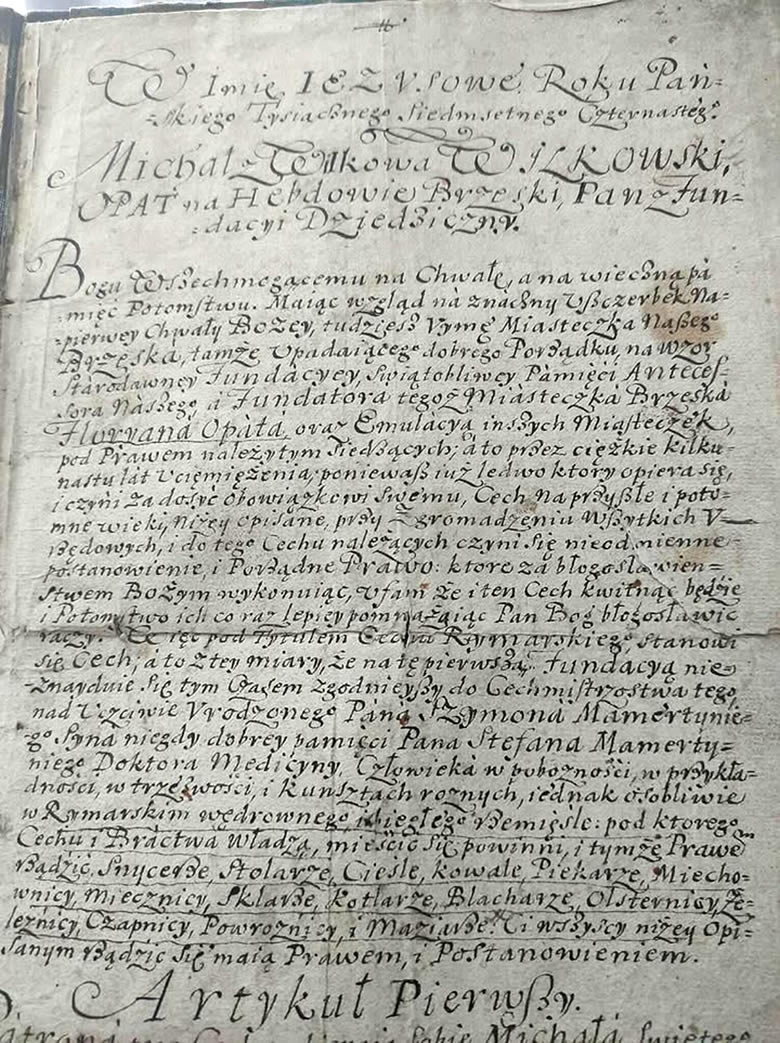 W Imię IEZVSowe, Roku Pań-
skiego Tysiącznego Siedmsetnego Czternasteg°
Michał z Wilkowa WILKOWSKI,
OPAT na Hebdowie Brzeski, Pan z Fun-
dacyi Dziedziczny.
Bogu Wszechmogącemu na Chwałę, a na wieczną pa
mięć Potomstwu. Maiąc wzgląd na znaczny Uszczerbek Na-
pierwey Chwały Bożey, tudziesz Vymę Miasteczka Naszeg°
Brzeska, tamże Upadaiącego dobrego Porządku, na wzor
Starodawney Fundácyey, Swiątobliwey Pámięci Anteces-
sora Nászego, á Fundatora tegoż Miásteczká Brzeská
Floryaná Opátá, oraz Emulacyą inszych Miásteczek,
pod Prawem należytym Siedzących; á to przez cięzkie kilku-
nastu lat Uciemiężenia, poniewasz iuż ledwo ktory opiera się,
i czyni za dosyć obowiązkowi swemu, Cech na przyszłe i poto-
mne wieki, niżey opisane, przy Zgromadzeniu Wszytkich V-
rzędowych, i do tego Cechu należących czyni się nieodmienne
postanowienie, i Porządne Prawo: ktore za błogosławien-
stwem Bożym wykonuiąc, Ufam że i ten Cech kwitnąc będzie
i Potomstwo ich co raz lepiey pomnażaiąc Pan Bog błogosławic
raczy. W ięc pod Tytułem Cechu Rymarskiego, stanowi
się Cech; á to z tey miary, że na tę pierwszą Fundacyą nie-
znayduie się tym Czasem zgodnieyszy do Cechmistrzostwa tego,
nad Uczciwie Vrodzonego Páná Szymoná Mamertynie-
go Syná niegdy dobrey pamięci Pana Stefana Mamerty-
niego Doktora Medicyny, Człowieka w pobożności, w przykła-
dności, w trzeźwości, i kunsztach roznych, iednak osobliwie
w Rymarskim wędrownego, i biegłego Rzemięśle: pod ktorego
Cechu i Bráctwá Włádzą, mieścić się powinni, i tymże Prawem
Rządzić, Snycerze, Stolarze, Cieśle, kowale, Piekarze, Miecho-
wnicy, Miecznicy, Sklarze, Kotlarze, Blacharze, Olsternicy, Że-
leznicy, Czapnicy, Powroznicy, i Maziarze. Ci wszyscy niżey Opi-
sanym Rządzić się maią Prawem, i Postanowieniem.
Artykuł Pierwszy.
sobie Michałá Świętego